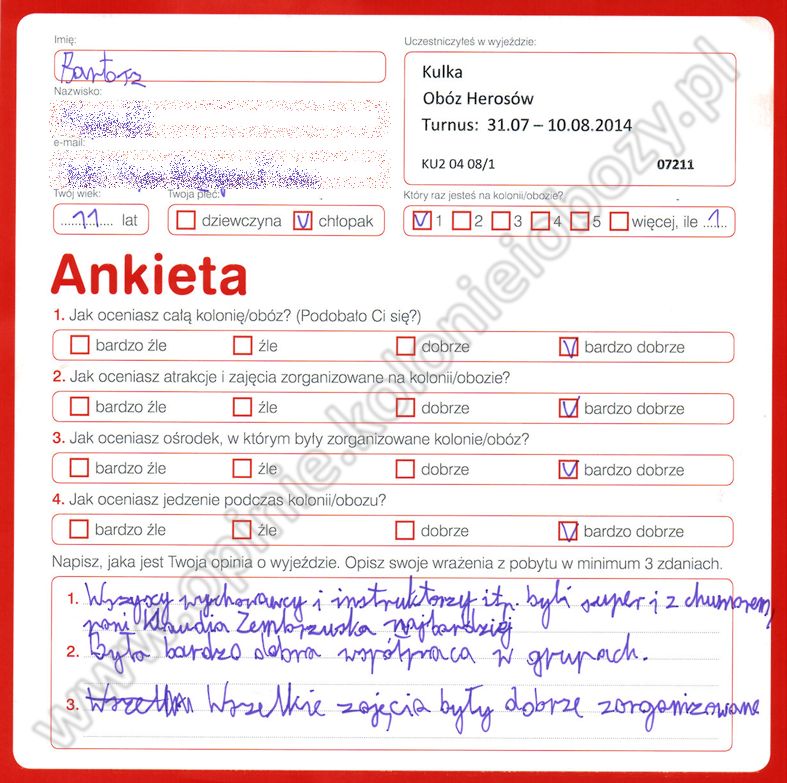 Imię:
Bartosz
Nazwisko:
e-mail:
Twój wiek:
11 lat
Twoja płeć:
dziewczyna chłopak
Uczestniczyłeś w wyjeździe:
Kulka
Obóz Herosów
Turnus: 31.07 – 10.08.2014
KU2 04 08/1 07211
Który raz jesteś na kolonii/obozie?
1 2 3 4 5 więcej, ile 1
Ankieta
1. Jak oceniasz całą kolonię/obóz? (Podobało Ci się?)
bardzo źle źle dobrze bardzo dobrze
2. Jak oceniasz atrakcje i zajęcia zorganizowane na kolonii/obozie?
bardzo źle źle dobrze bardzo dobrze
3. Jak oceniasz ośrodek, w którym były zorganizowane kolonie/obóz?
bardzo źle źle dobrze bardzo dobrze
4. Jak oceniasz jedzenie podczas kolonii/obozu?
bardzo źle źle dobrze bardzo dobrze
Napisz, jaka jest Twoja opinia o wyjeździe. Opisz swoje wrażenia z pobytu w minimum 3 zdaniach.
1. Wszyscy wychowawcy i instruktorzy itp. byli super i z chumorem,
pani Klaudia Zembrzuska najbardziej
2. Była bardzo dobra współpraca w grupach.
3. Wszelkie zajęcia były dobrze zorganizowane
www.opinie.kolonieiobozy.pl